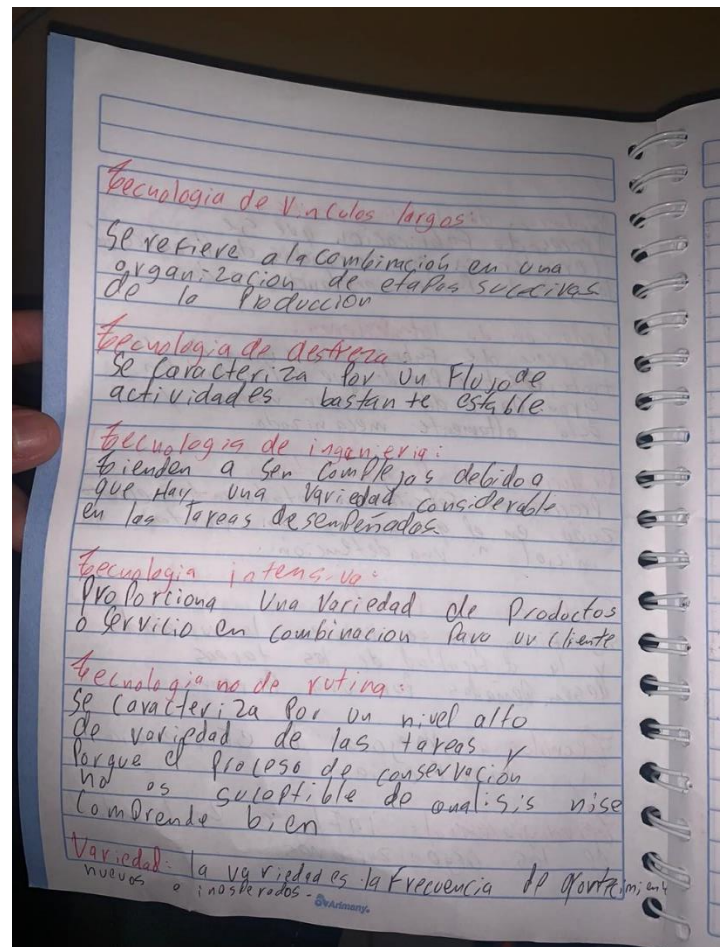 tecnologia de Vinculos largos:
Se refiere a la combinación en una
organización de etapas sucecivas
de la Producción
tecnologia de destreza
Se caracteriza por un Flujo de
actividades bastante estable
tecnologia de ingenieria:
tienden a ser complejas debido a
que Hay una variedad considerable
en las Tareas desempeñadas
tecnologia intensiva:
Proporciona Una Variedad de Productos
o Servicio en combinacion Para un cliente
tecnologia no de rutina:
Se caracteriza Por un nivel alto
de variedad de las tareas y
Porque el Proceso de conservación
no es suceptible de analisis nise
Comprende bien
Variedad: la variedad es la Frecuencia de
nuevos a inosperados-
Arimany.